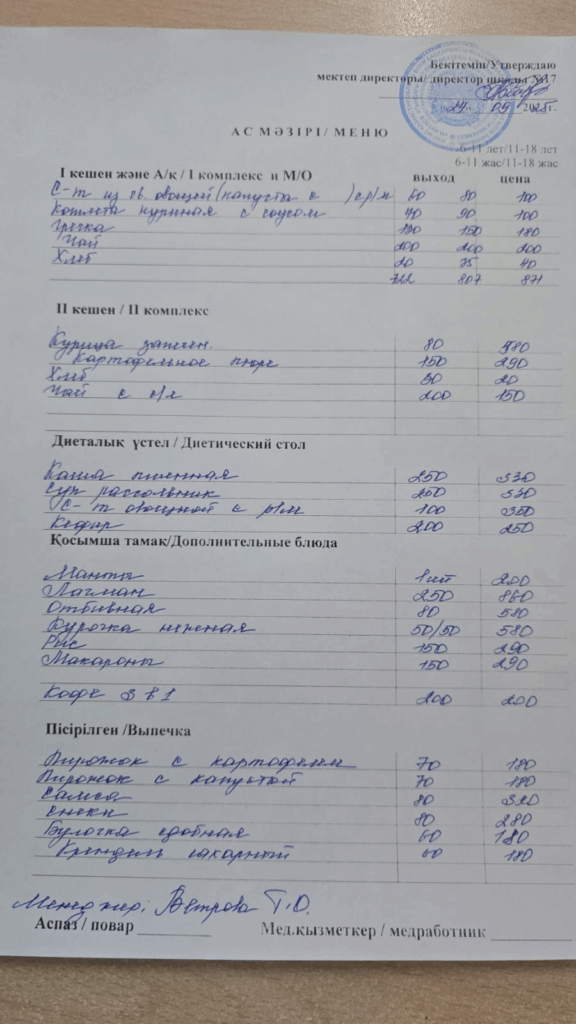 Бекітемін/Утверждаю
мектеп директоры/ директор школы №17
АС МӘЗІРІ/ МЕНЮ
6-11 лет/11-18 лет
6-11 жас/11-18 жас
I кешен және А/қ / I комплекс и М/О выход цена
С-т из св. овощей (капуста с ) с р/м 60 80 100
Котлета куриная с соусом 90 100
Гречка 150 180
Чай 200 200 200
Хлеб 20 75 40
722 807 871
II кешен / II комплекс
Курица запечен. 80
Картофельное пюре 150 290
Хлеб 20
Чай с с/л 200 150
Диеталық үстел / Диетический стол
Каша пшенная 250 330
Суп рассольник 250 330
С-т овощной с р/м 100 350
Кефир 200 250
Қосымша тамақ/Дополнительные блюда
Манты 1 шт 200
Лагман 250 860
Отбивная 80 580
Курочка 50/50 580
Рис 150 290
Макароны 150 290
Кофе 3 в 1 200 200
Пісірілген /Выпечка
Пирожок с картофелем 70 180
Пирожок с капустой 70 180
Самса 80 320
80 280
Булочка сдобная 60 180
Крендель сахарный 60 180
Менеджер: Т.О.
Аспаз / повар Мед.қызметкер / медработник